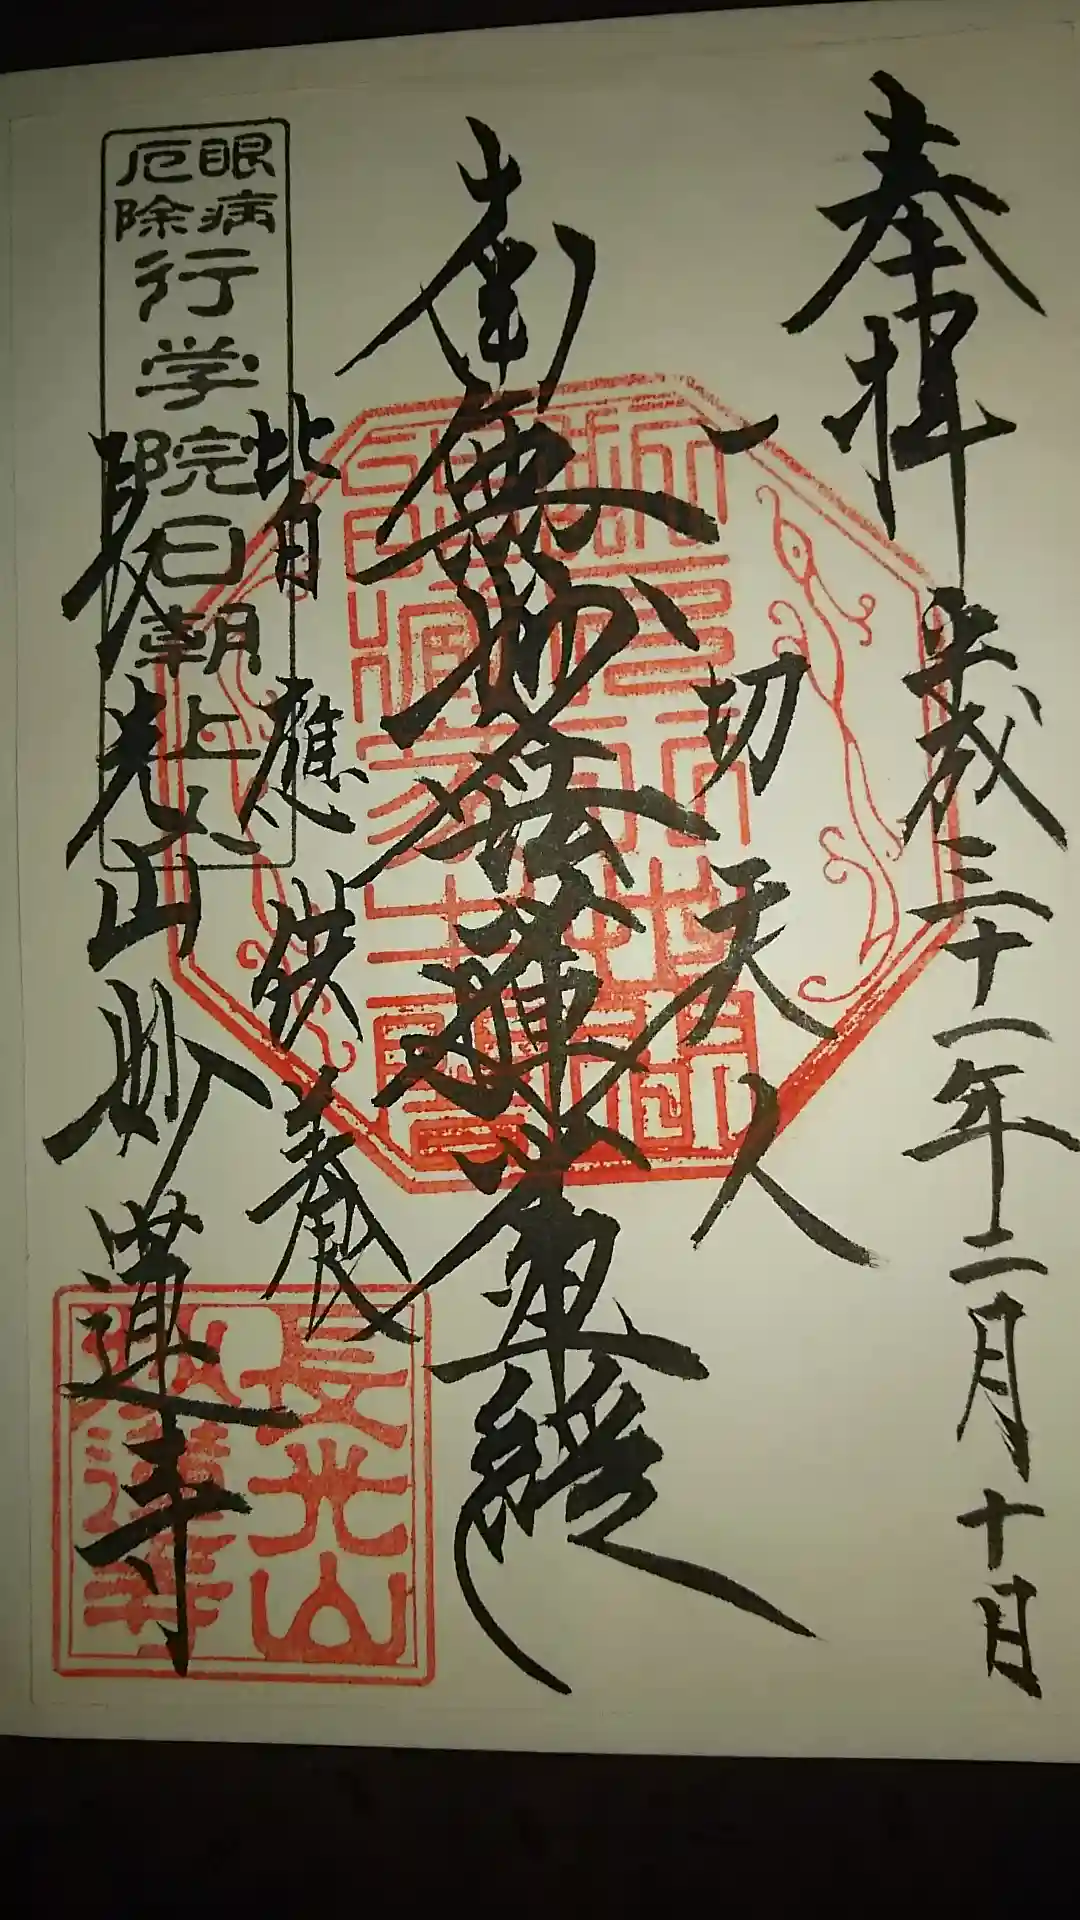 奉拝
平成三十一年二月十日
一切天人
南無妙法蓮華経
皆應供養
長光山妙蓮寺
眼病
厄除
行学院日朝上人
長光山
妙蓮寺